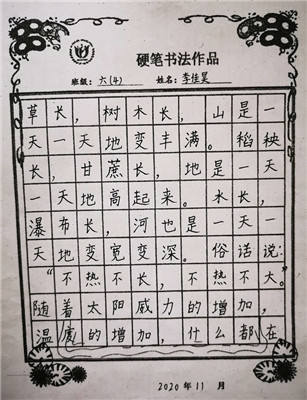 硬笔书法作品
班级：六(4) 姓名：李佳昊
草长，树木长，山是一
天一天地变丰满。稻秧
长，甘蔗长，地是一天
一天地高起来。水长，
瀑布长，河也是一天一
天地变宽变深。俗话说：
“不热不长，不热不大。”
随着太阳威力的增加，
温度的增加，什么都在
2020年11月